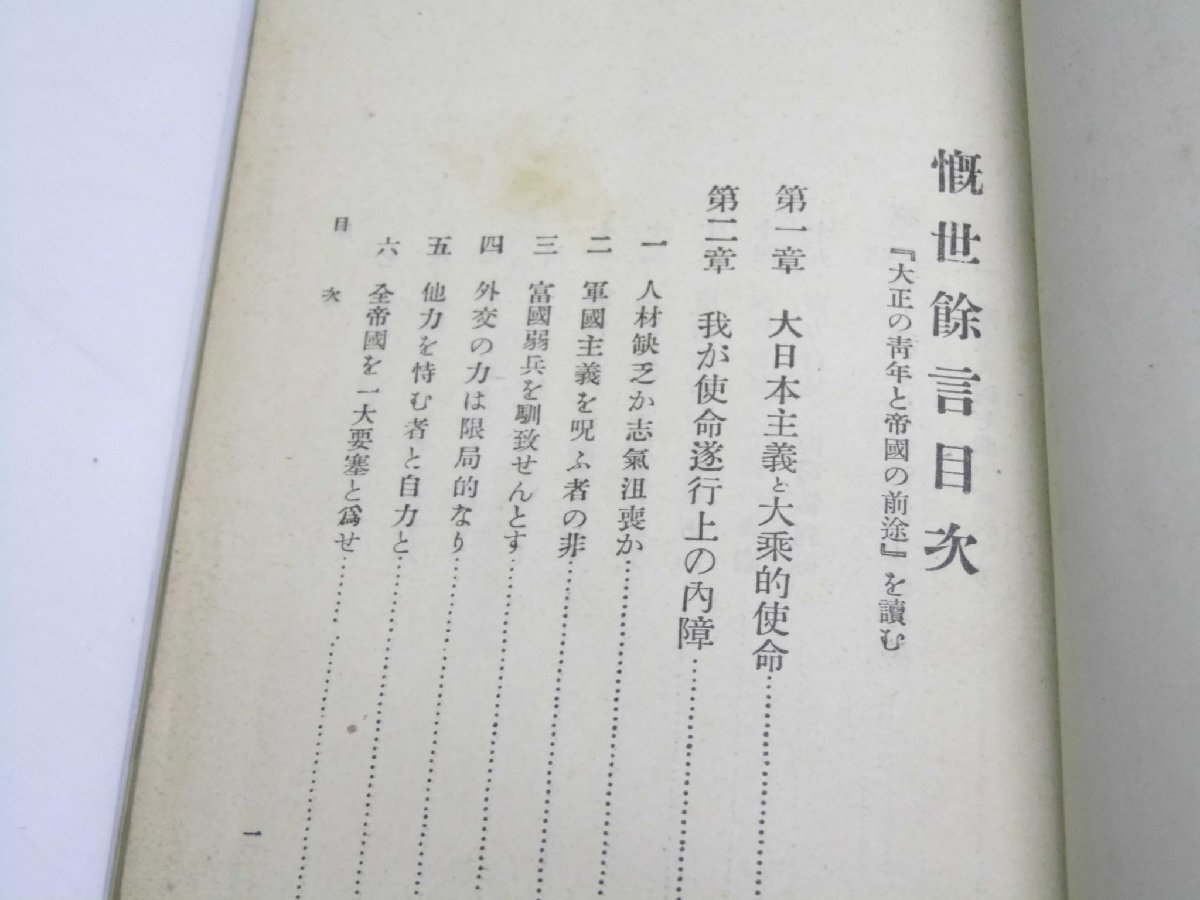 慨世餘言目次
『大正の靑年と帝國の前途』を讀む
第一章 大日本主義と大乘的使命
第二章 我が使命遂行上の內障
一 人材缺乏か志氣沮喪か
二 軍國主義を呪ふ者の非
三 富國弱兵を馴致せんとす
四 外交の力は限局的なり
五 他力を恃む者と自力と
六 全帝國を一大要塞と爲せ
目次
一